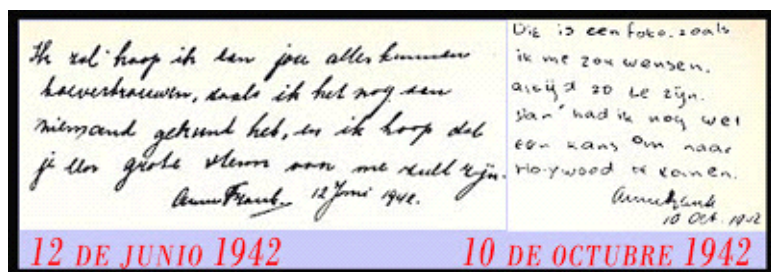 Ik zal hoop ik aan jou alles kunnen
toevertrouwen, zoals ik het nog aan
niemand gekund heb, en ik hoop dat
je een grote steun van me zult zijn.
Anne Frank. 12 Juni 1942.
Dit is een foto, zoals
ik me zou wensen,
altijd zo te zijn.
Dan had ik nog wel
een kans om naar
Holywood te komen.
Anne Frank
10 Oct. 1942
12 DE JUNIO 1942
10 DE OCTUBRE 1942